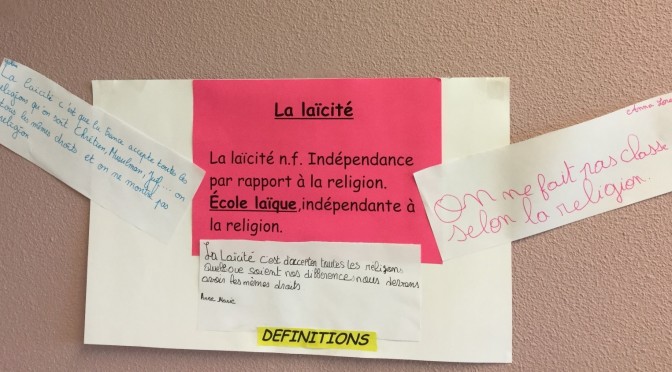 La laïcité c'est que la France accepte toutes les
religions qu'on soit Chrétien, Musulman, Juif... on
tous les mêmes droits et on ne montre pas
religion
La laïcité
La laïcité n.f. Indépendance
par rapport à la religion.
École laïque,indépendante à
la religion.
La Laïcité c'est d'accepter toutes les religions
quelque soient nos différence nous devrons
avoir les mêmes droits
Anne Marie
DEFINITIONS
Anna
On ne fait pas classe
selon la religion.